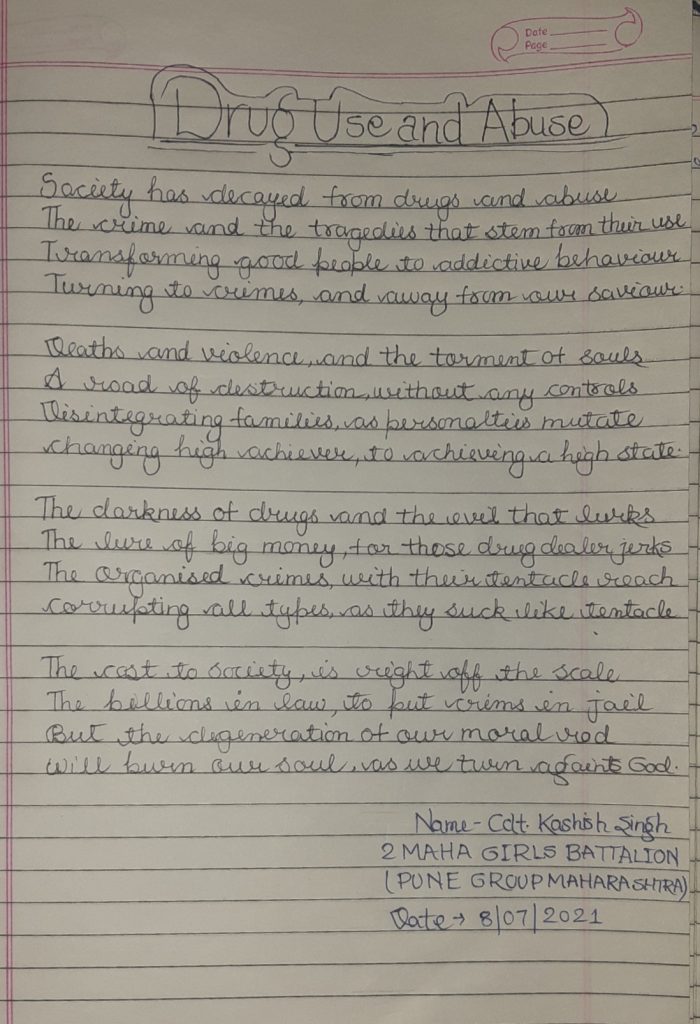 Date
Page
Drug Use and Abuse
Society has decayed from drugs and abuse
The crime and the tragedies that stem from their use
Transforming good people to addictive behaviour
Turning to crimes, and away from our saviour.
Deaths and violence, and the torment of souls
A road of destruction, without any controls
Disintegrating families, as personalties mutate
changing high achiever, to achieving a high state.
The darkness of drugs and the evil that lurks
The lure of big money, for those drug dealer jerks
The organised crimes, with their tentacle reach
corrupting all types, as they suck like tentacle
The cost to society, is right off the scale
The billions in law, to put crims in jail
But the degeneration of our moral rod
will burn our soul, as we turn againts God.
Name- Cdt. Kashish Singh
2 MAHA GIRLS BATTALION
(PUNE GROUP MAHARASHTRA)
Date → 8/07/2021